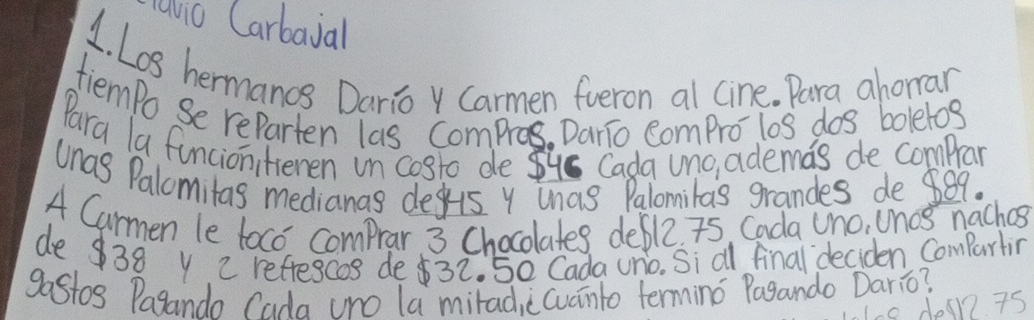 Carbajal
1. Los hermanos Darío y Carmen fueron al cine. Para ahorrar
tiempo se reparten las compras. Darío compró los dos boletos
Para la función, tienen un costo de $46 cada uno, además de comprar
unas Palomitas medianas de $45 y unas Palomitas grandes de $89.
A Carmen le tocó comprar 3 Chocolates de $12.75 Cada uno, unos nachos
de $38 y 2 refrescos de $32.50 Cada uno. Si al final deciden Compartir
gastos Pagando Cada uno la mitad, ¿cuánto terminó Pagando Darío?
de $12.75